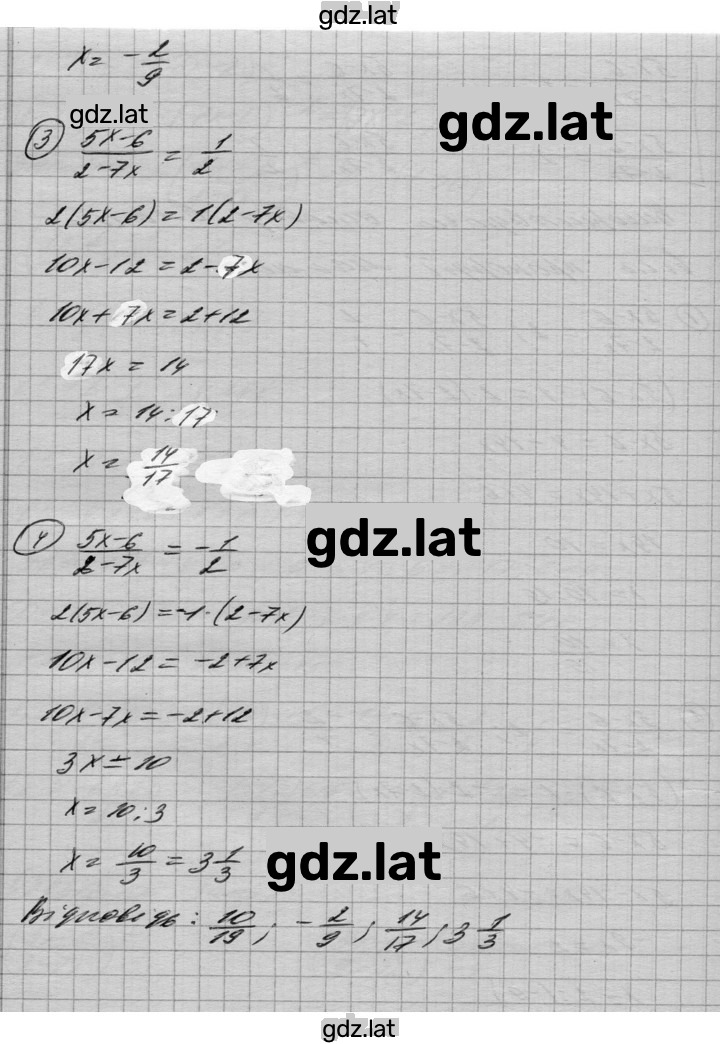 gdz.lat
x = - 2/9
gdz.lat
gdz.lat
3) (5x-6)/(2-7x) = 1/2
2(5x-6) = 1(2-7x)
10x-12 = 2-7x
10x+7x = 2+12
17x = 14
x = 14:17
x = 14/17
gdz.lat
4) (5x-6)/(2-7x) = -1/2
2(5x-6) = -1·(2-7x)
10x-12 = -2+7x
10x-7x = -2+12
3x = 10
x = 10:3
x = 10/3 = 3 1/3
gdz.lat
Відповідь: 10/19; -2/9; 14/17; 3 1/3
gdz.lat